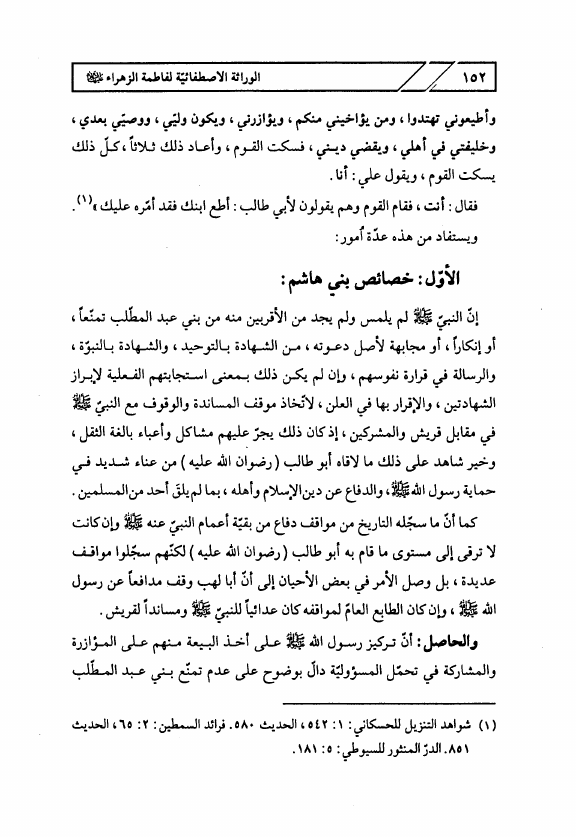 ١٥٢ الوراثة الاصطفائيّة لفاطمة الزهراء
وأطيعوني تهتدوا ، ومن يؤاخيني منكم ، ويؤازرني ، ويكون وليّي ، ووصيّي بعدي ،
وخليفتي في أهلي ، ويقضي ديـني ، فسكت القـوم ، وأعـاد ذلك ثـلاثاً ، كـلّ ذلك
يسكت القوم ، ويقول علي : أنا .
فقال : أنت ، فقام القوم وهم يقولون لأبي طالب : أطع ابنك فقد أمّره عليك »(١).
ويستفاد من هذه عدّة اُمور :
الأوّل : خصائص بني هاشم :
إنّ النبيّ ﷺ لم يلمس ولم يجد من الأقربين منه من بني عبد المطّلب تمنّعاً ،
أو إنكاراً ، أو مجابهة لأصل دعـوته ، مـن الشـهادة بـالتوحيد ، والشـهادة بـالنبوّة ،
والرسالة في قرارة نفوسهم ، وإن لم يكـن ذلك بـمعنى اسـتجابتهم الفـعلية لإبـراز
الشهادتين ، والإقرار بها في العلن ، لاتّخاذ موقف المساندة والوقوف مع النبيّ ﷺ
في مقابل قريش والمشركين ، إذ كان ذلك يجرّ عليهم مشاكل وأعباء بالغة الثقل ،
وخير شاهد على ذلك ما لاقاه أبو طالب ( رضوان الله عليه ) من عناء شديد فـي
حماية رسول الله ﷺ ، والدفاع عن دين الإسلام وأهله ، بما لم يلقَ أحد من المسلمين .
كما أنّ ما سجّله التاريخ من مواقف دفاع من بقيّة أعمام النبيّ عنه ﷺ وإن كانت
لا ترقى إلى مستوى ما قام به أبو طالب ( رضوان الله عليه ) لكنّهم سجّلوا مواقـف
عديدة ، بل وصل الأمر في بعض الأحيان إلى أنّ أبا لهب وقف مدافعاً عن رسول
الله ﷺ ، وإن كان الطابع العامّ لمواقفه كان عدائياً للنبيّ ﷺ ومسانداً لقريش .
والحاصل : أنّ تركيز رسول الله ﷺ عـلى أخـذ البـيعة مـنهم عـلى المـؤازرة
والمشاركة في تحمّل المسؤوليّة دالّ بوضوح على عدم تمنّع بـني عـبد المـطّلب
(١) شواهد التنزيل للحسكاني : ١ : ٥٤٢ ، الحديث ٥٨٠. فرائد السمطين : ٢ : ٦٥ ، الحديث
٨٥١. الدرّ المنثور للسيوطي : ٥ : ١٨١.